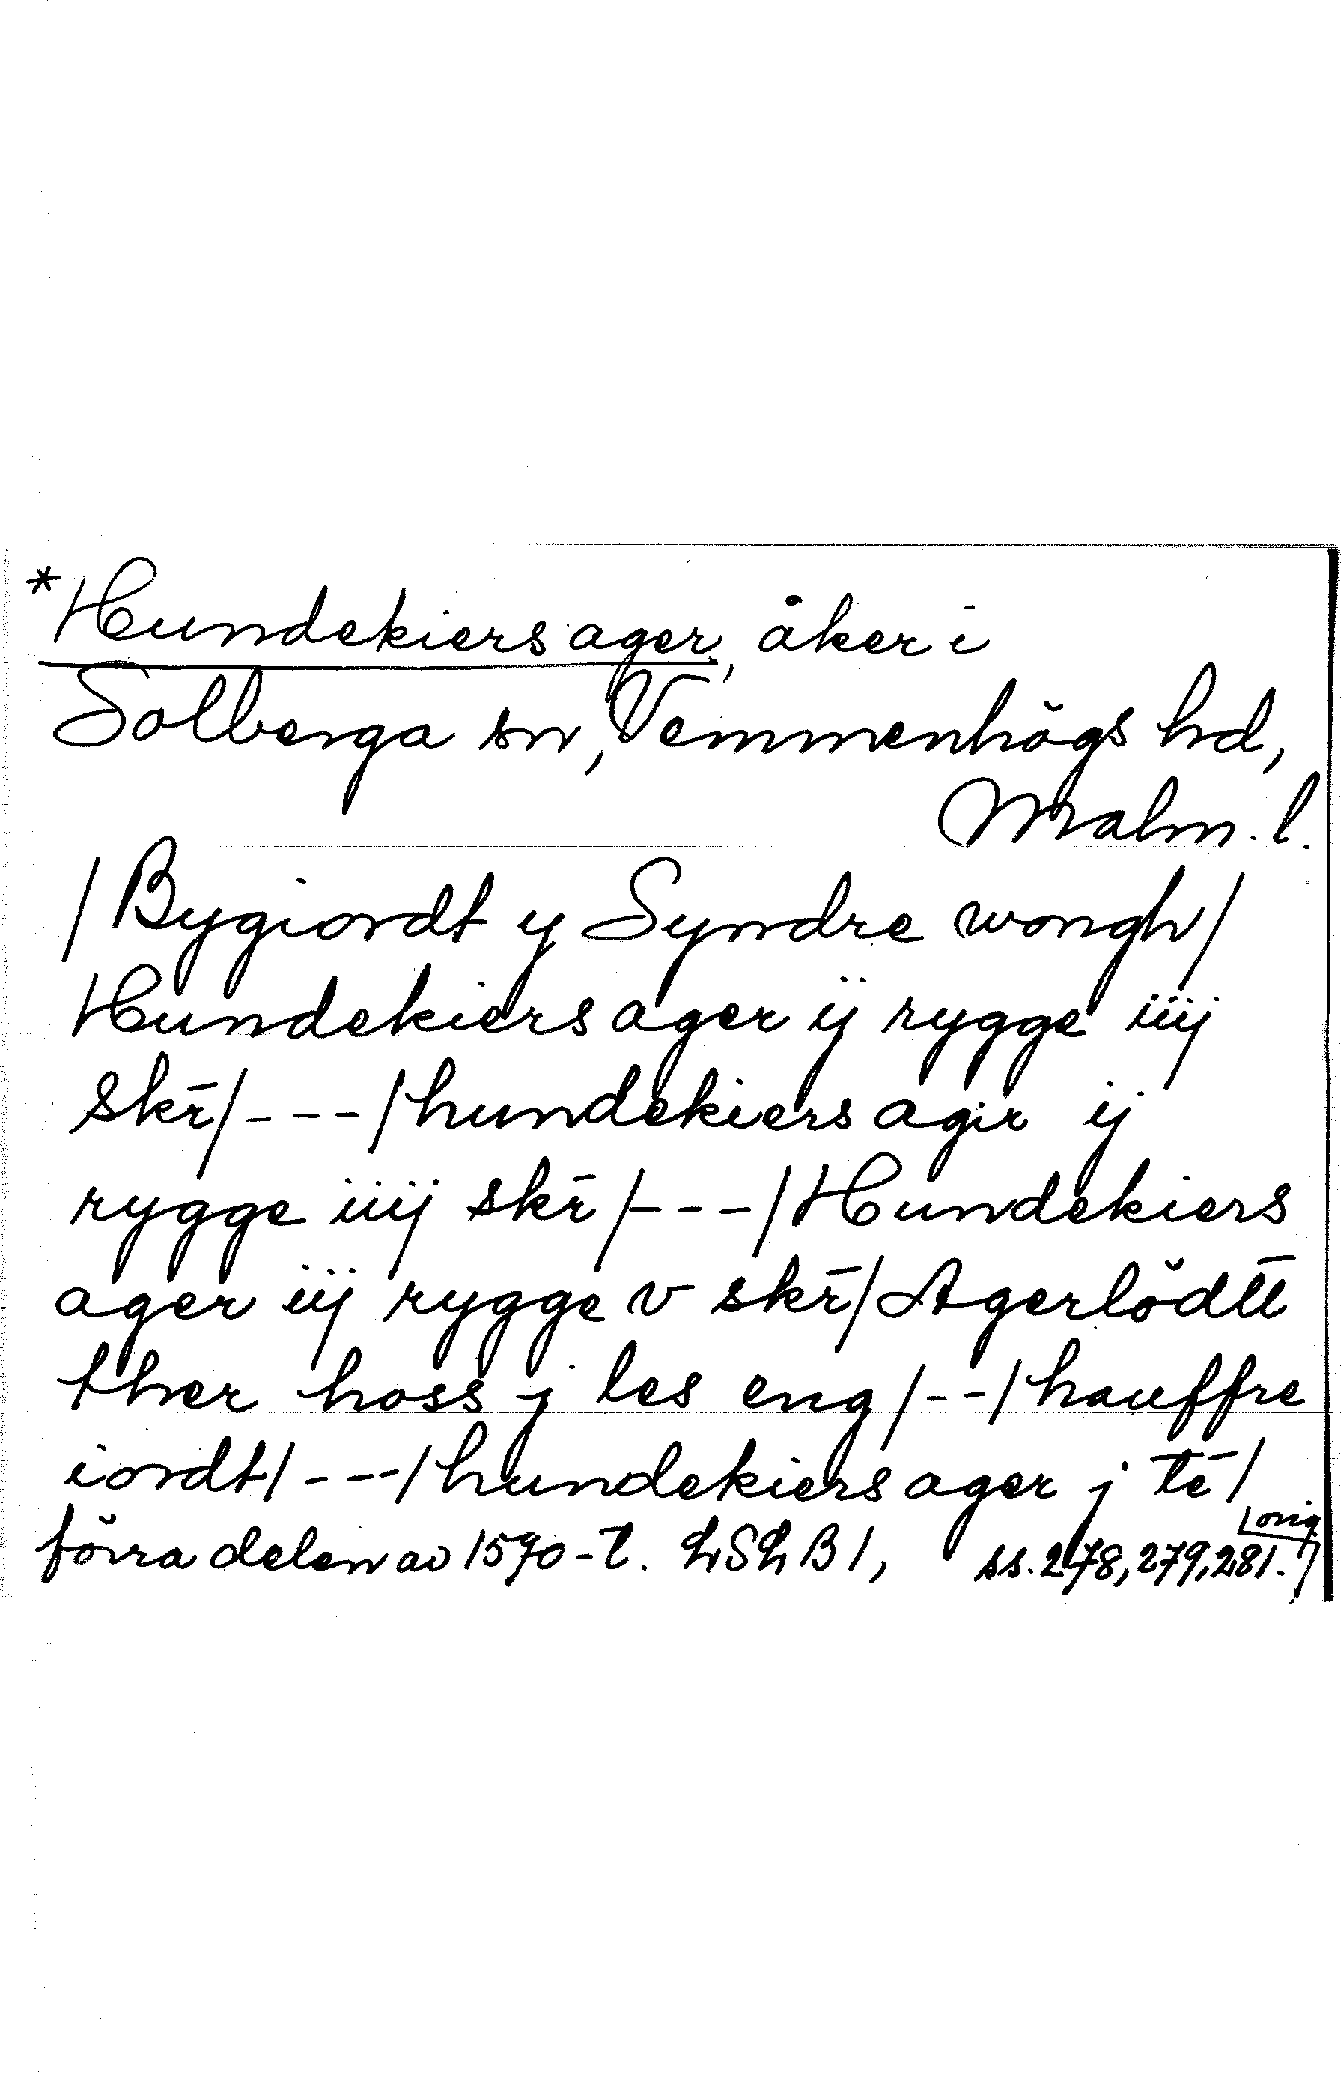 *Hundekiers ager, åker i
Solberga sn, Vemmenhögs hd,
Malm. l.
/Bygiordt y Syndre wongh/
Hundekiers ager ij rygge iiij
skr̄/---/hundekiers agir ij
rygge iiij skr̄/---/Hundekiers
ager iij rygge v skr̄/Agerlödtt̄
ther hoss j les eng/--/hauffre
iordt/---/hundekiers ager j tē/
förra delen av 1590-t. LSLB1, ss. 278, 279, 281.
orig